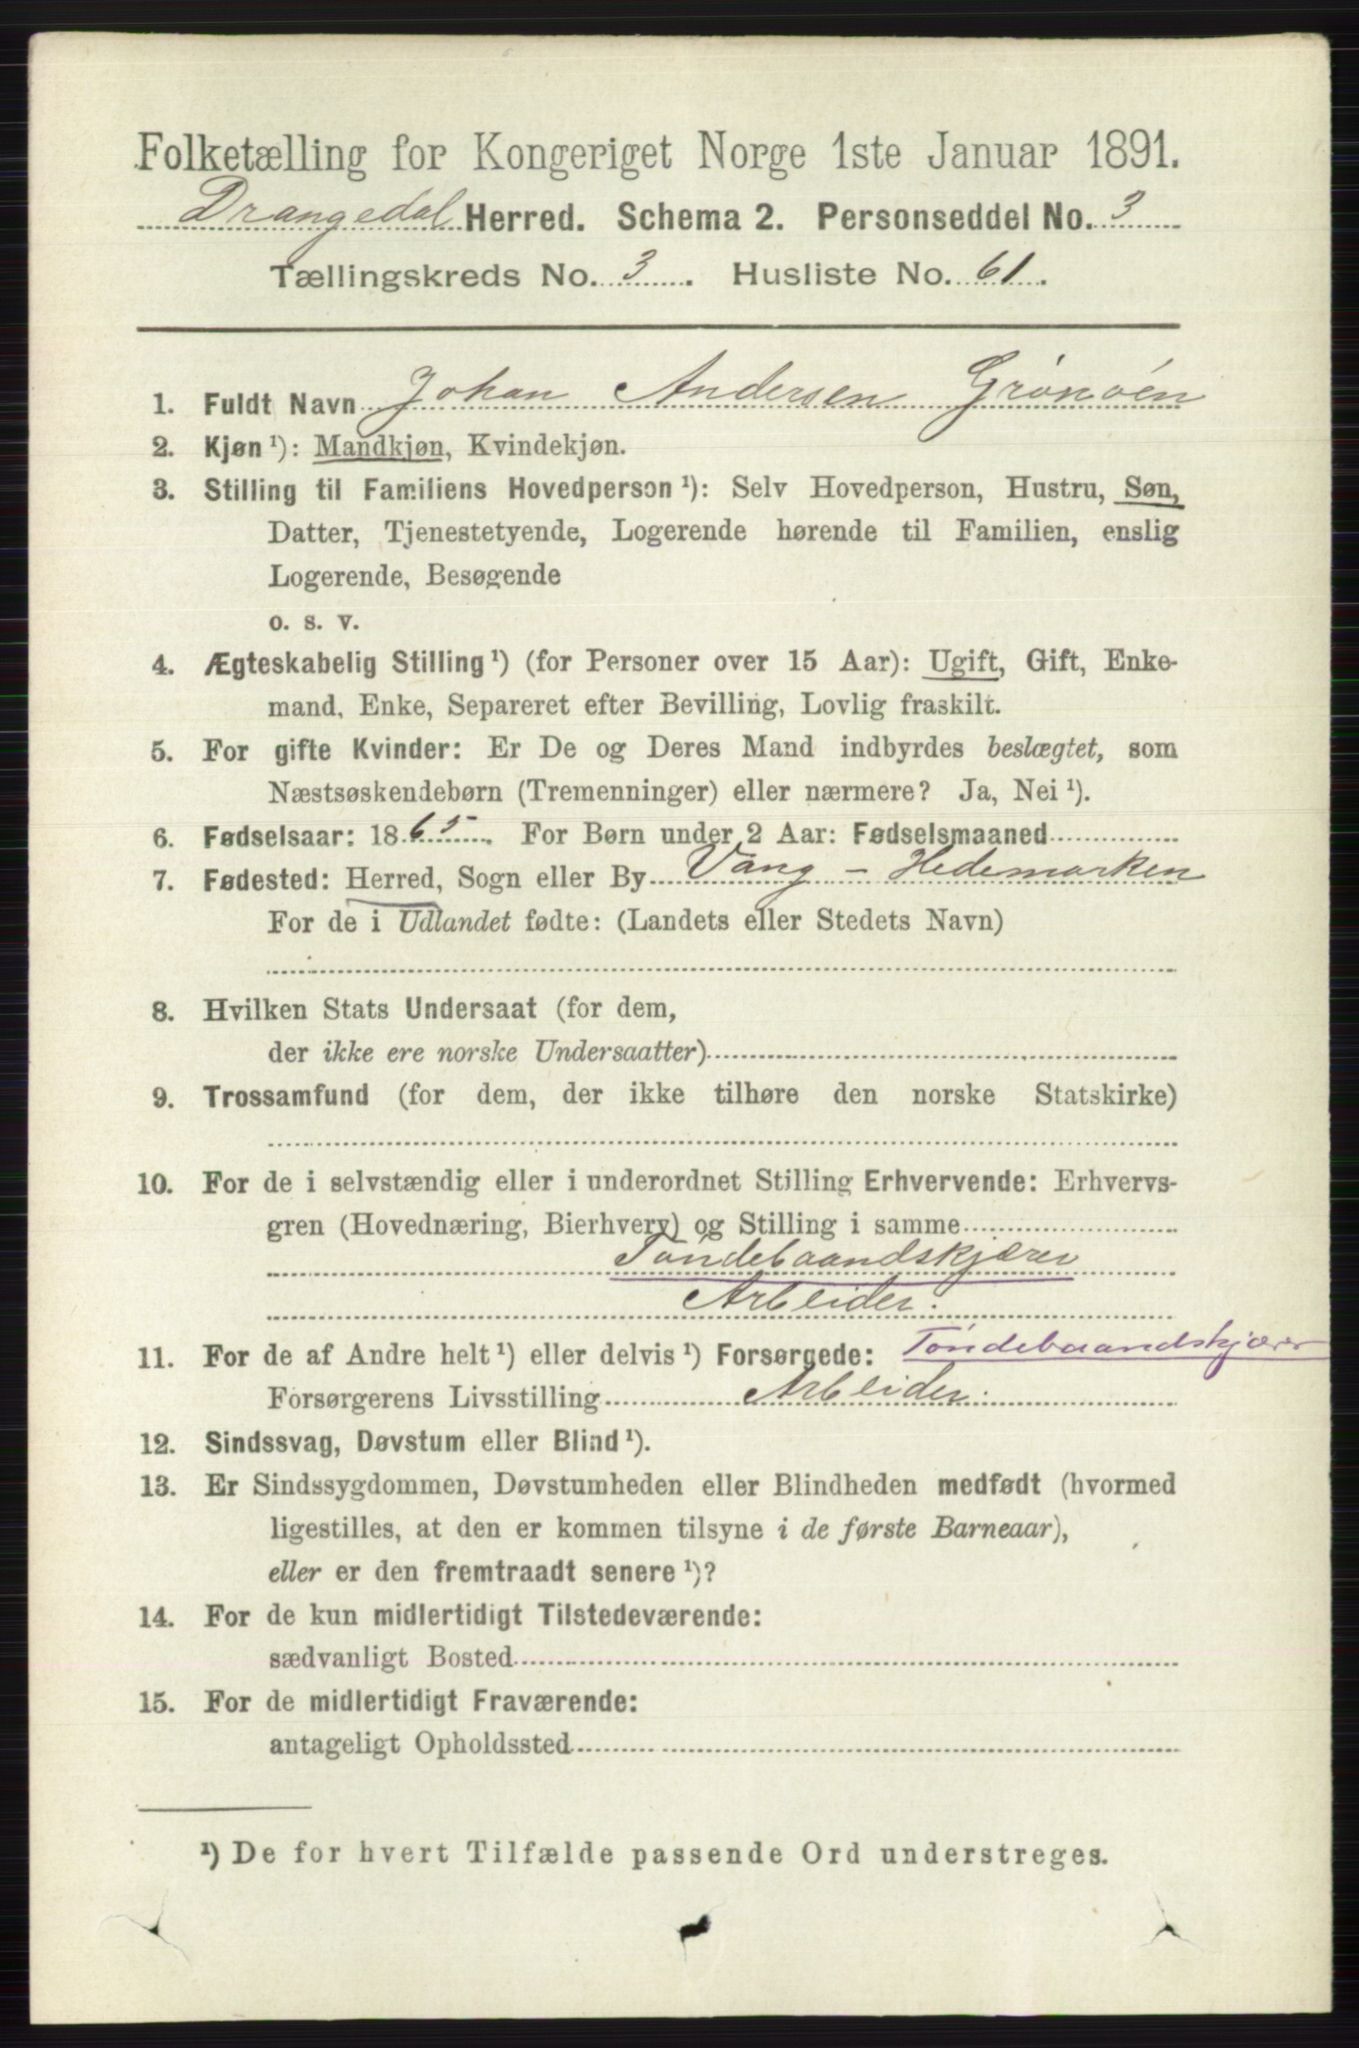 Folketælling for Kongeriget Norge 1ste Januar 1891.
Drangedal Herred. Schema 2. Personseddel No. 3
Tællingskreds No. 3. Husliste No. 61.
1. Fuldt Navn Johan Andersen Grönöen
2. Kjøn ¹): Mandkjøn, Kvindekjøn.
3. Stilling til Familiens Hovedperson ¹): Selv Hovedperson, Hustru, Søn,
Datter, Tjenestetyende, Logerende hørende til Familien, enslig
Logerende, Besøgende
o. s. v.
4. Ægteskabelig Stilling ¹) (for Personer over 15 Aar): Ugift, Gift, Enke-
mand, Enke, Separeret efter Bevilling, Lovlig fraskilt.
5. For gifte Kvinder: Er De og Deres Mand indbyrdes beslægtet, som
Næstsøskendebørn (Tremenninger) eller nærmere? Ja, Nei ¹).
6. Fødselsaar: 1865. For Børn under 2 Aar: Fødselsmaaned
7. Fødested: Herred, Sogn eller By Vang - Hedemarken
For de i Udlandet fødte: (Landets eller Stedets Navn)
8. Hvilken Stats Undersaat (for dem,
der ikke ere norske Undersaatter)
9. Trossamfund (for dem, der ikke tilhøre den norske Statskirke)
10. For de i selvstændig eller i underordnet Stilling Erhvervende: Erhvervs-
gren (Hovednæring, Bierhverv) og Stilling i samme
Töndebaandskjærer
Arbeider.
11. For de af Andre helt ¹) eller delvis ¹) Forsørgede: Töndebaandskjærer
Forsørgerens Livsstilling Arbeider.
12. Sindssvag, Døvstum eller Blind ¹).
13. Er Sindssygdommen, Døvstumheden eller Blindheden medfødt (hvormed
ligestilles, at den er kommen tilsyne i de første Barneaar),
eller er den fremtraadt senere ¹)?
14. For de kun midlertidigt Tilstedeværende:
sædvanligt Bosted
15. For de midlertidigt Fraværende:
antageligt Opholdssted
¹) De for hvert Tilfælde passende Ord understreges.